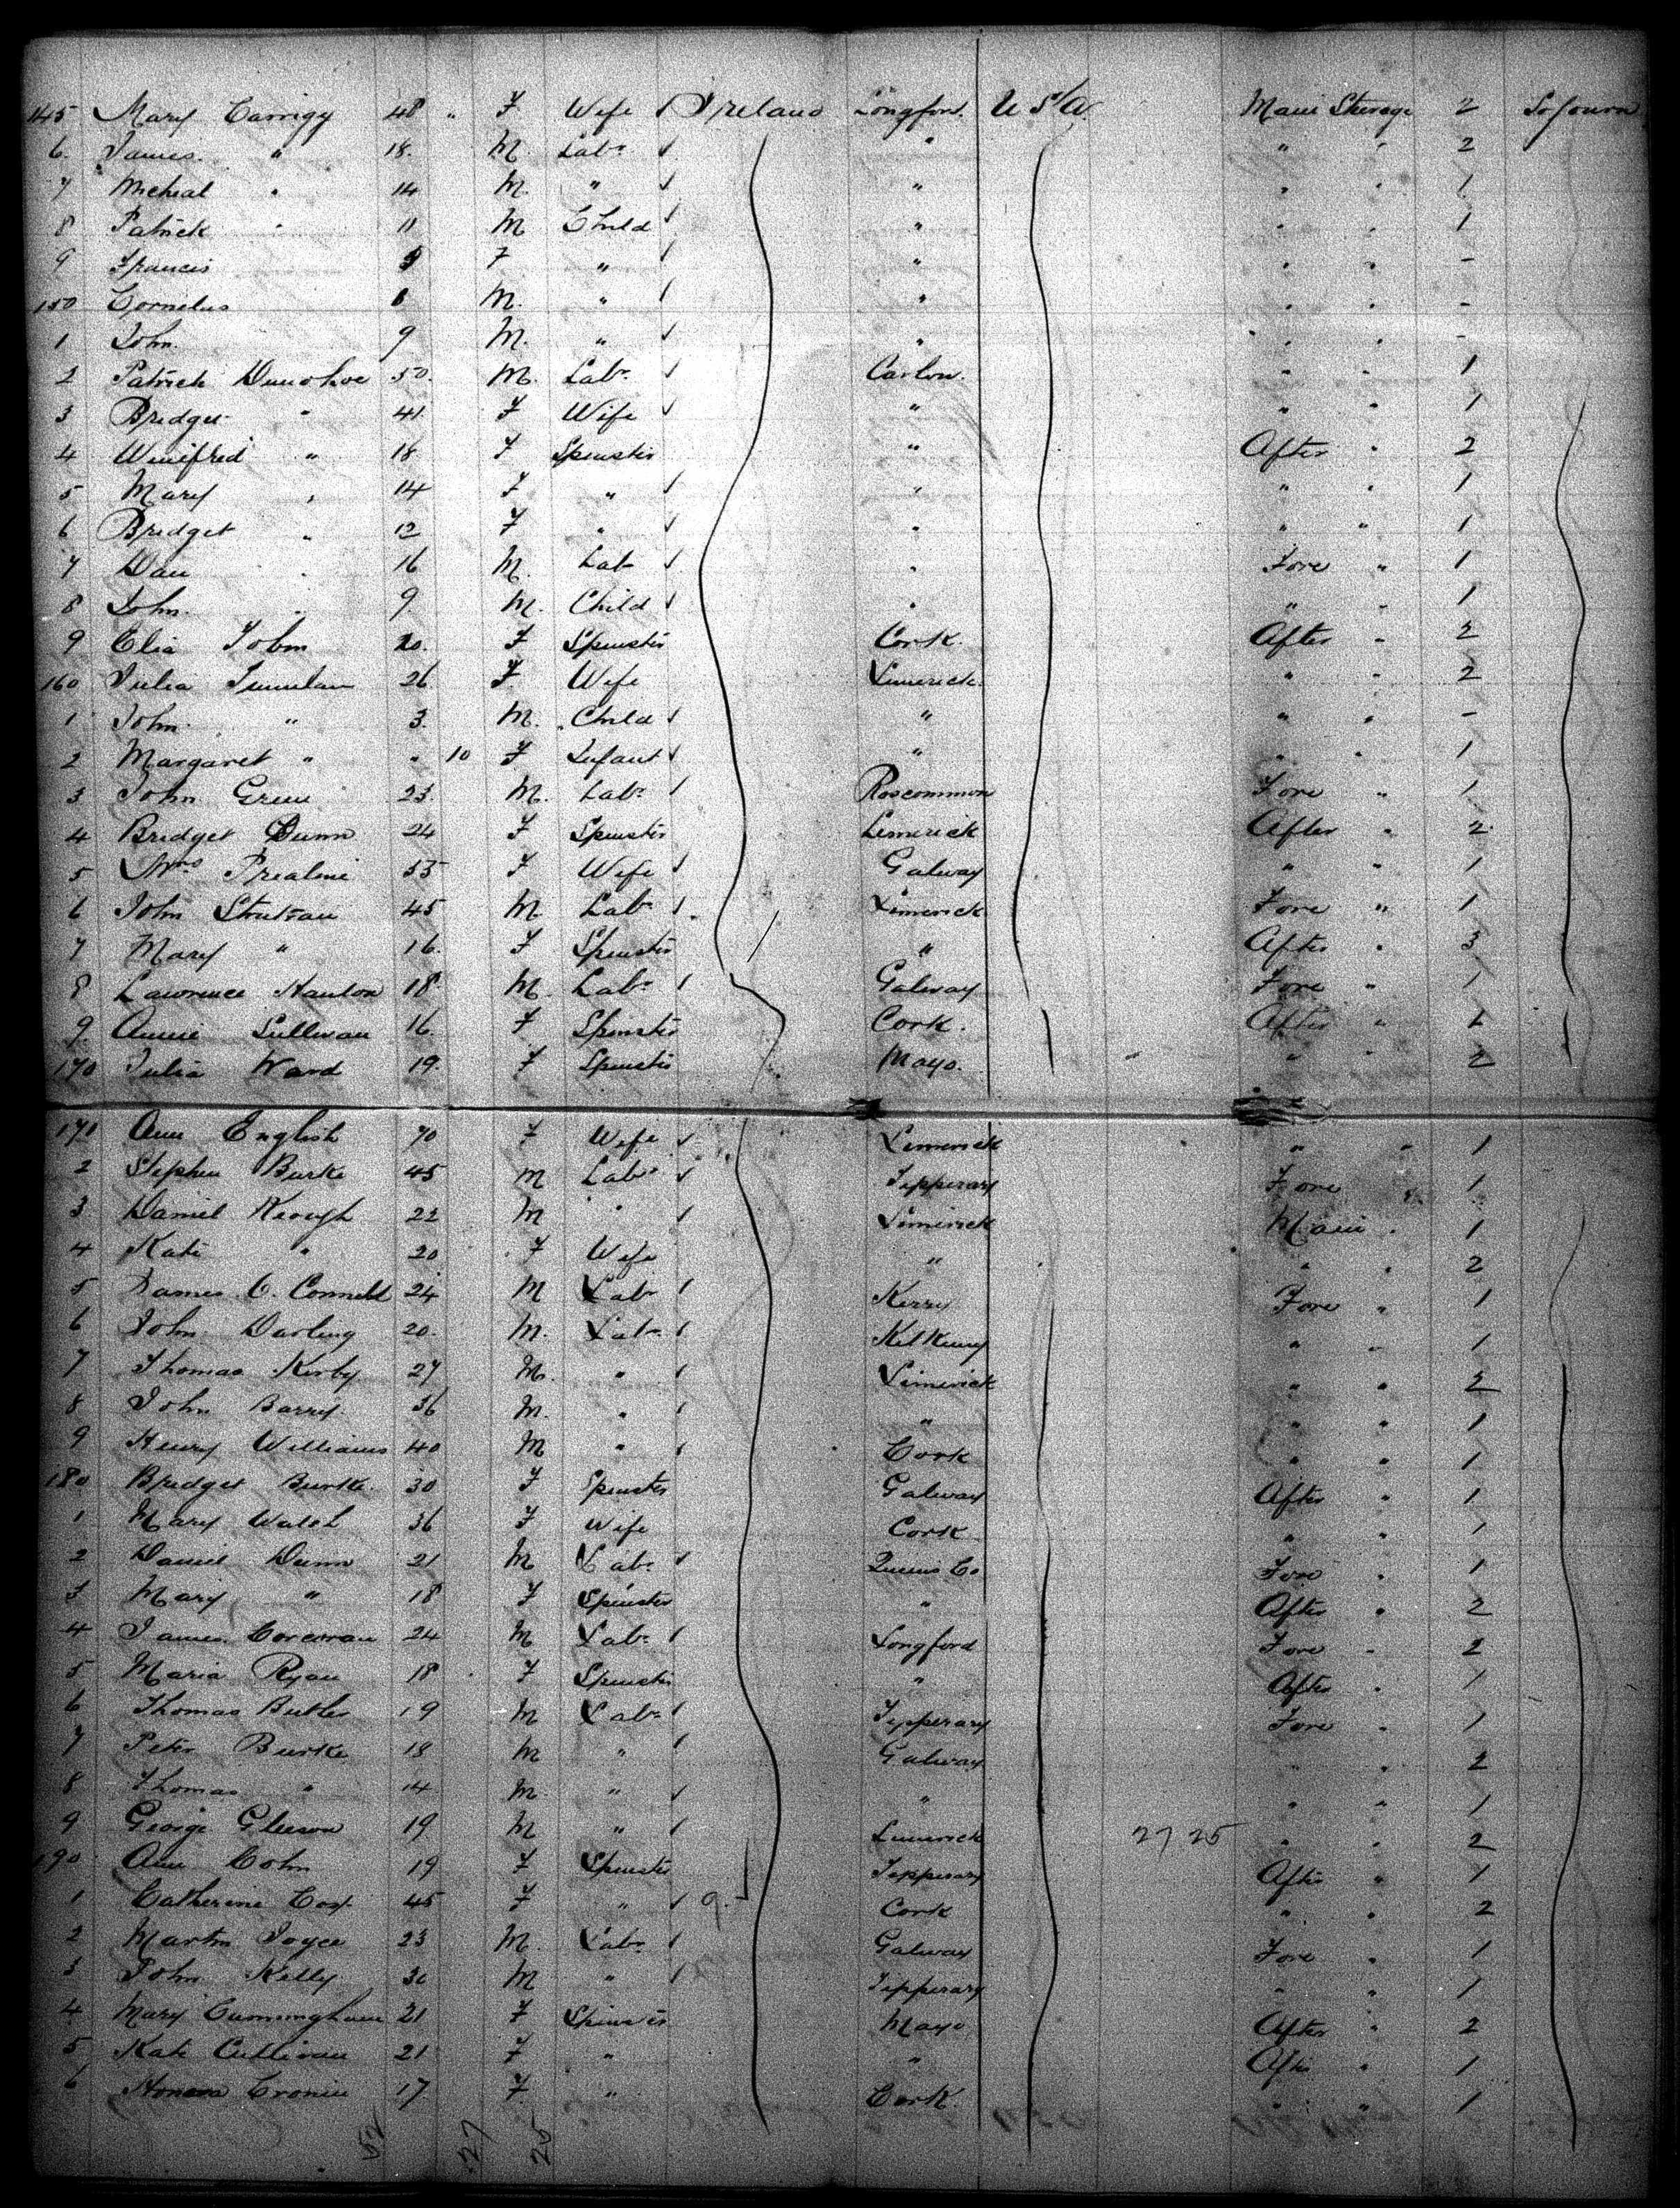 145 Mary Carrigy 48 " F Wife Ireland Longford U S A Main Sterage 2 Sojourn
6 James " 18 M Labr " " " 2
7 Micheal " 14 M " " " " 1
8 Patrick " 11 M Child " " " 1
9 Francis F " " " " -
150 Cornelus M " " " " -
1 John 9 M " " " " -
2 Patrick Donohoe 50 M Labr Carlow " " 1
3 Bridget " 41 F Wife " " " 1
4 Winifred " 18 F Spinster " After " 2
5 Mary " 14 F " " " " 1
6 Bridget " 12 F " " " " 1
7 Dan " 16 M Labr " Fore " 1
8 John " 9 M Child " " " 1
9 Eliz Tobin 20 F Spinster Cork After " 2
160 Julia 26 F Wife Limerick " " 2
1 John " 3 M Child " " " -
2 Margaret " " 10 F Infant " " " 1
3 John Green 23 M Labr Roscommon Fore " 1
4 Bridget Dunn 24 F Spinster Limerick After " 2
5 Mrs 55 F Wife Galway " " 1
6 John 45 M Labr Limerick Fore " 1
7 Mary " 16 F Spinster " After " 3
8 Lawrence Hanlon 18 M Labr Galway Fore " 1
9 Annie Sullivan 16 F Spinster Cork After " 1
170 Julia Ward 19 F Spinster Mayo " " 2
171 Ann English 70 F Wife Limerick " " 1
2 Stephen Burke 45 M Labr Tipperary Fore " 1
3 Daniel Keough 22 M " Limerick Main " 1
4 Kate " 20 F Wife " " " 2
5 James O. Connell 24 M Labr Kerry Fore " 1
6 John Darling 20 M Labr Kilkenny " " 1
7 Thomas Kirby 27 M " Limerick " " 2
8 John Barry 36 M " " " " 1
9 Henry Williams 40 M " Cork " " 1
180 Bridget Burke 30 F Spinster Galway After " 1
1 Mary Walsh 36 F Wife Cork " " 1
2 Daniel Dunn 21 M Labr Queens Co Fore " 1
3 Mary " 18 F Spinster " After " 2
4 James Corcoran 24 M Labr Longford Fore " 2
5 Maria Ryan 18 F Spinster " After " 1
6 Thomas Butler 19 M Labr Tipperary Fore " 1
7 Peter Burke 18 M " Galway " " 2
8 Thomas " 14 M " " " " 1
9 George Gleeson 19 M " Limerick 27 25 " " 2
190 Ann 19 F Spinster Tipperary After " 1
1 Catherine Cox 45 F " 9 Cork " " 2
2 Martin Joyce 23 M Labr Galway Fore " 1
3 John Kelly 30 M " Tipperary " " 1
4 Mary Cunningham 21 F Spinster Mayo After " 2
5 Kate Cullivan 21 F " " After " 1
6 Honora Cronin 17 F " Cork " " 1
52 27 25